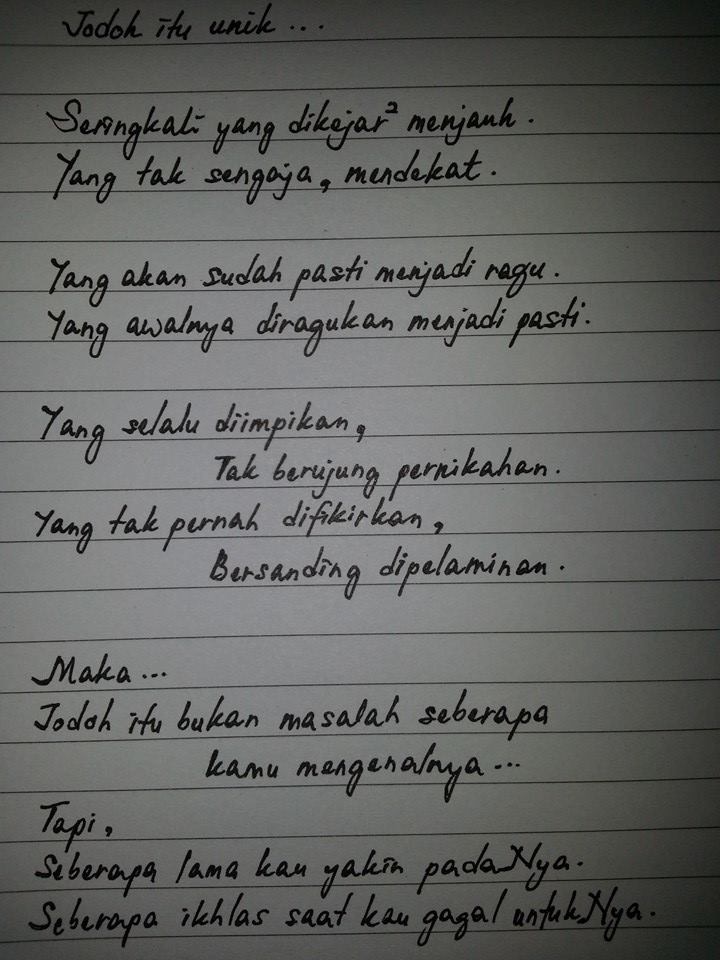 Jodoh itu unik...
Seringkali yang dikejar² menjauh.
Yang tak sengaja, mendekat.
Yang akan sudah pasti menjadi ragu.
Yang awalnya diragukan menjadi pasti.
Yang selalu diimpikan,
Tak berujung pernikahan.
Yang tak pernah difikirkan,
Bersanding dipelaminan.
Maka...
Jodoh itu bukan masalah seberapa
kamu mengenalnya...
Tapi,
Seberapa lama kau yakin padaNya.
Seberapa ikhlas saat kau gagal untukNya.